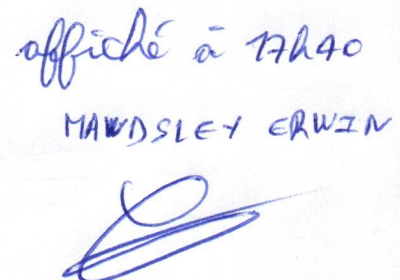 affiché à 17h40
MAWDSLEY ERWIN